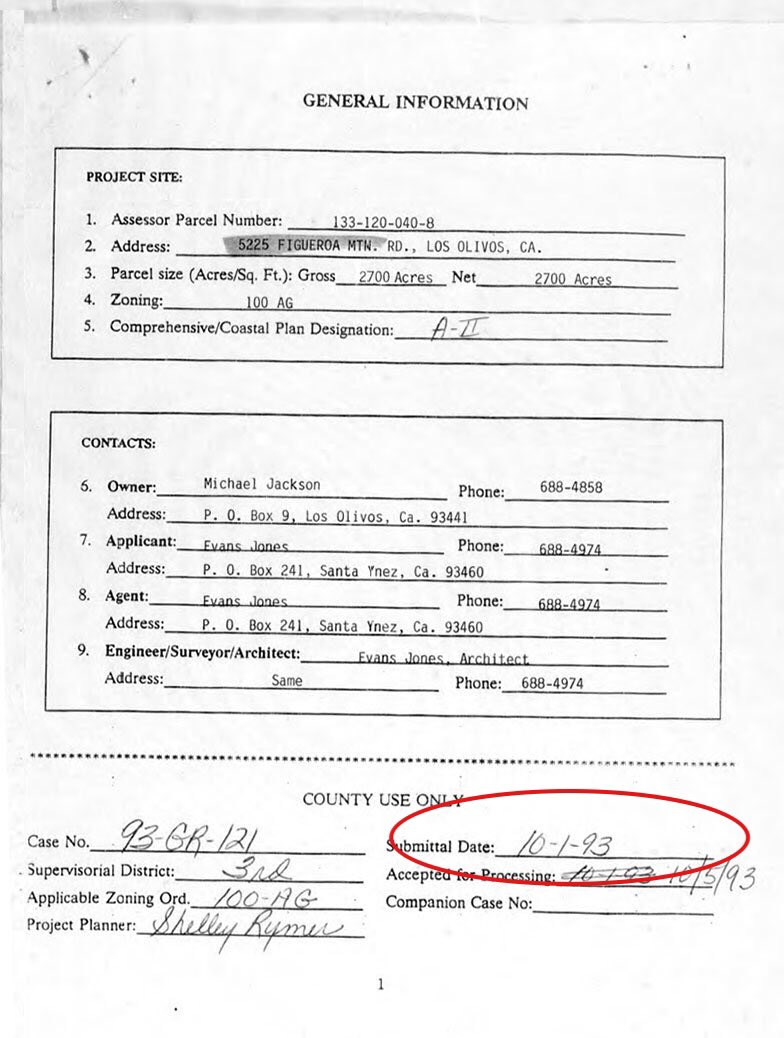 GENERAL INFORMATION
PROJECT SITE:
1. Assessor Parcel Number: 133-120-040-8
2. Address: 5225 FIGUEROA MTN. RD., LOS OLIVOS, CA.
3. Parcel size (Acres/Sq. Ft.): Gross 2700 Acres Net 2700 Acres
4. Zoning: 100 AG
5. Comprehensive/Coastal Plan Designation: A-II
CONTACTS:
6. Owner: Michael Jackson Phone: 688-4858
Address: P. O. Box 9, Los Olivos, Ca. 93441
7. Applicant: Evans Jones Phone: 688-4974
Address: P. O. Box 241, Santa Ynez, Ca. 93460
8. Agent: Evans Jones Phone: 688-4974
Address: P. O. Box 241, Santa Ynez, Ca. 93460
9. Engineer/Surveyor/Architect: Evans Jones, Architect
Address: Same Phone: 688-4974
COUNTY USE ONLY
Case No. 93-GR-121 Submittal Date: 10-1-93
Supervisorial District: 3rd Accepted for Processing: 10-1-93 10/5/93
Applicable Zoning Ord. 100-AG Companion Case No:
Project Planner: Shelley Rymer
1